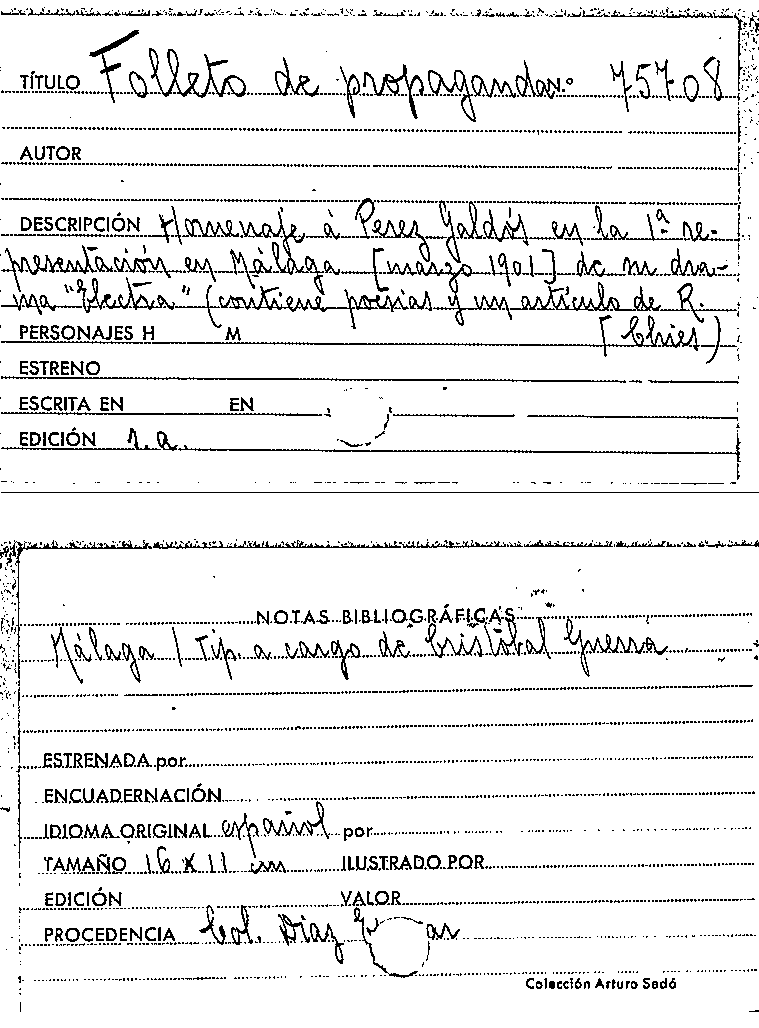 TÍTULO Folleto de propaganda N.º 75708
AUTOR
DESCRIPCIÓN Homenaje á Perez Galdós en la 1ª re-
presentación en Málaga [marzo 1901] de su dra-
ma "Electra" (contiene poesias y un artículo de R.
PERSONAJES H M [Chies)
ESTRENO
ESCRITA EN EN
EDICIÓN s.a.
NOTAS BIBLIOGRÁFICAS
Málaga / Tip. a cargo de Cristóbal Guerra
ESTRENADA por
ENCUADERNACIÓN
IDIOMA ORIGINAL español por
TAMAÑO 16 x 11 cm ILUSTRADO POR
EDICIÓN VALOR
PROCEDENCIA Col. Diaz
Colección Arturo Sedó